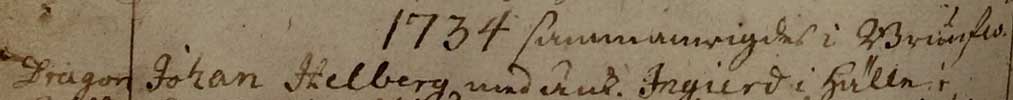 1734 sammanvigdes i Brunflo.
Dragon Johan Helberg med änk. Ingierd i Hälle i